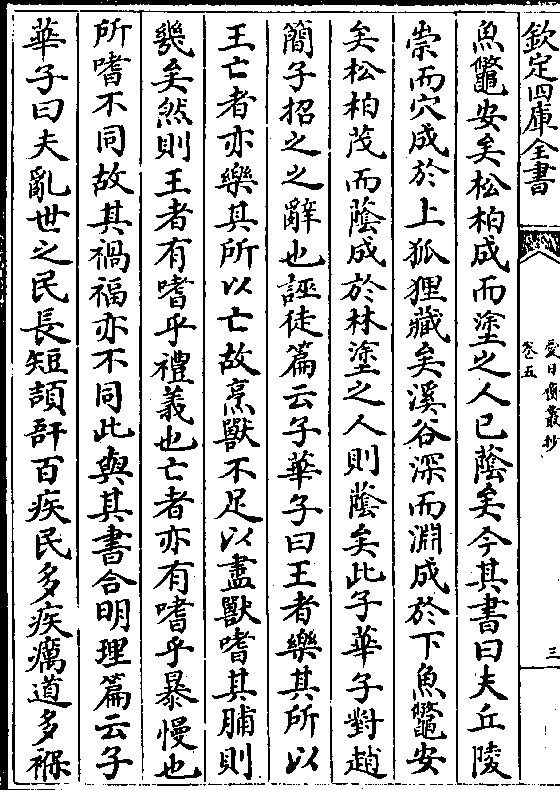 欽定四庫全書
愛日齋叢抄
卷五
三
魚鼈安矣松柏成而塗之人已蔭矣今其書曰夫丘陵
崇而穴成於上狐狸藏矣溪谷深而淵成於下魚鼈安
矣松柏茂而蔭成於林塗之人則蔭矣此子華子對趙
簡子招之之辭也誣徒篇云子華子曰王者樂其所以
王亡者亦樂其所以亡故烹獸不足以盡獸嗜其脯則
㡬矣然則王者有嗜乎禮義也亡者亦有嗜乎暴慢也
所嗜不同故其禍福亦不同此與其書合明理篇云子
華子曰夫亂世之民長短頡䛊百疾民多疾癘道多褓